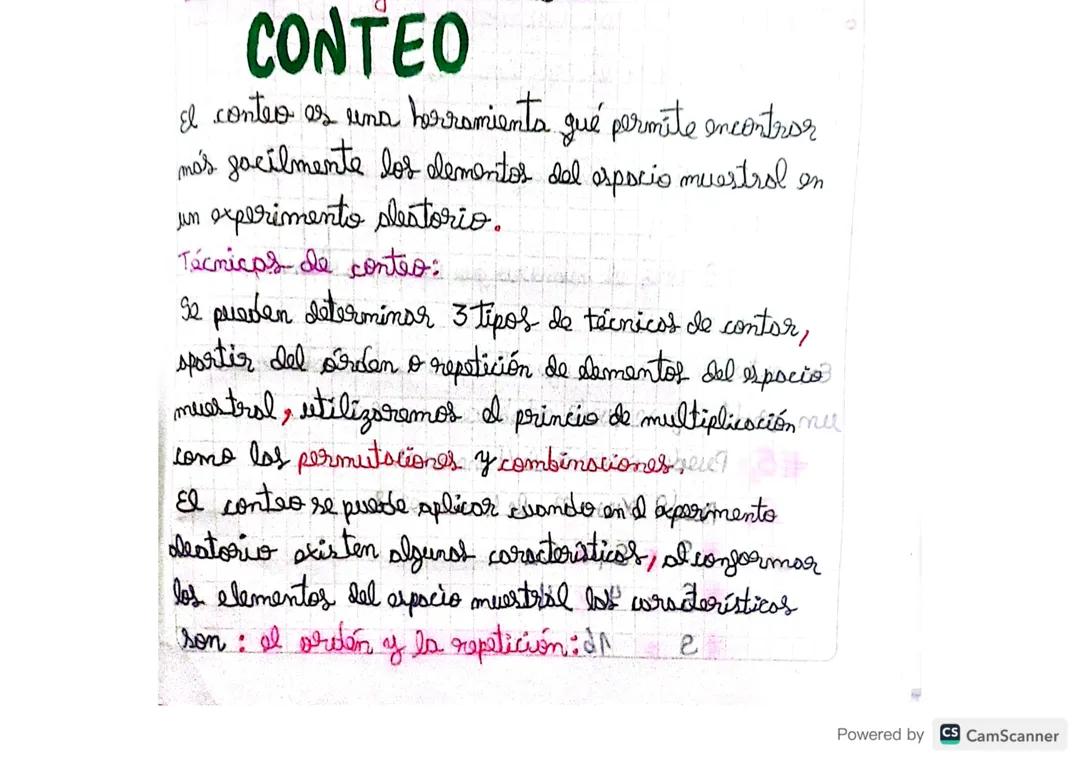 CONTEO
El conteo es una herramienta qué permite encontrar
más facilmente los elementos del espacio muestral en
un experimento aleatorio.
Técnicas de conteo:
Se pueden determinar 3 tipos de técnicas de contar,
apartir del órden o repetición de elementos del espacio
muestral, utilizaremos el princio de multiplicación
como las permutaciones y combinaciones.
El conteo se puede aplicar cuando en el experimento
aleatorio existen algunas características, al conformar
los elementos del espacio muestral las características
son: el ordén y la repetición:
Powered by CS CamScanner